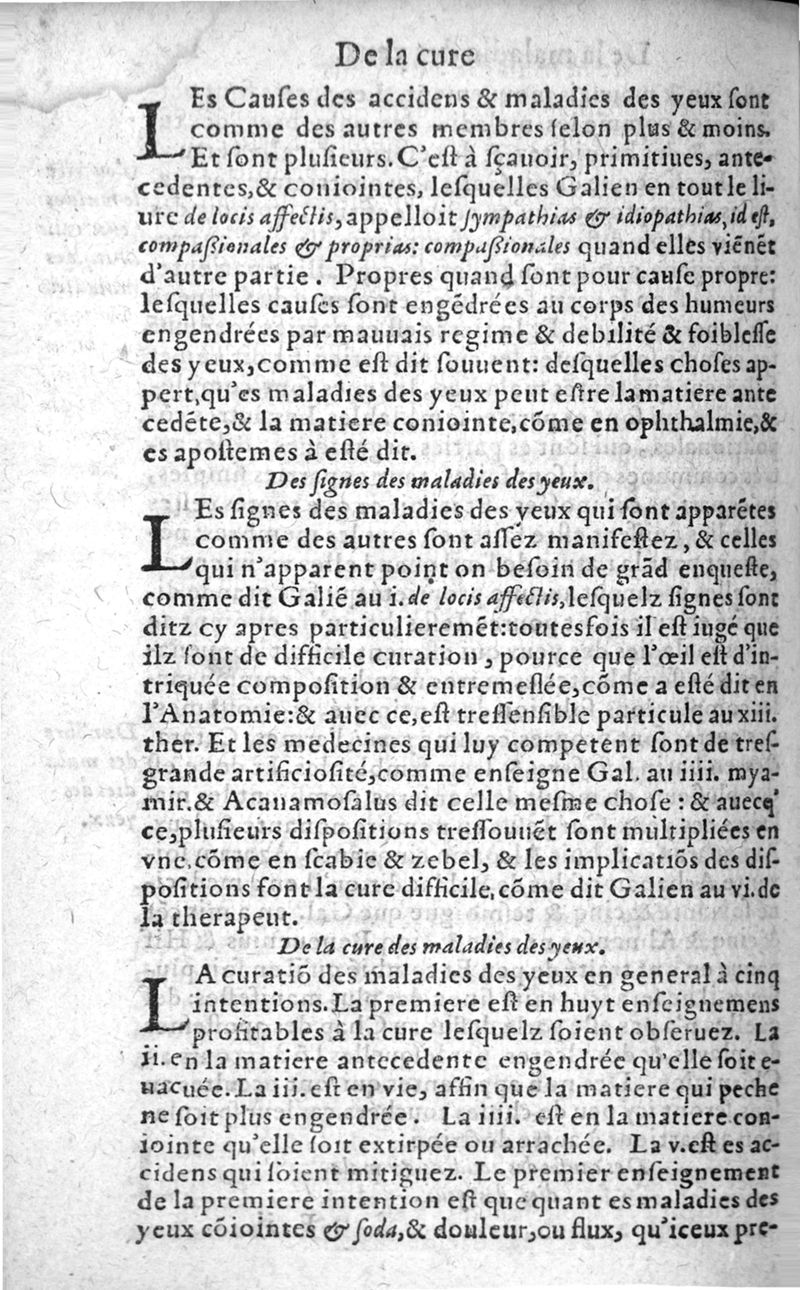 De la cure
LEs Cauſes des accidens & maladies des yeux ſont
comme des autres membres ſelon plus & moins.
Et ſont pluſieurs. C'eſt à ſçauoir, primitiues, ante-
cedentes, & coniointes, leſquelles Galien en tout le li-
ure de locis affectis, appelloit ſympathias & idiopathias, id eſt,
compaßionales & proprias: compaßionales quand elles viẽnẽt
d'autre partie. Propres quand ſont pour cauſe propre:
leſquelles cauſes ſont engẽdrées au corps des humeurs
engendrées par mauuais regime & debilité & foibleſſe
des yeux, comme eſt dit ſouuent: deſquelles choſes ap-
pert, qu'es maladies des yeux peut eſtre la matiere ante
cedẽte, & la matiere coniointe, cõme en ophthalmie, &
es apoſtemes à eſté dit.
Des ſignes des maladies des yeux.
LEs ſignes des maladies des yeux qui ſont apparẽtes
comme des autres ſont aſſez manifeſtez, & celles
qui n'apparent point on beſoin de grãd enqueſte,
comme dit Galiẽ au i. de locis affectis, leſquelz ſignes ſont
ditz cy apres particulieremẽt: toutesfois il eſt iugé que
ilz ſont de difficile curation, pource que l'œil eſt d'in-
triquée compoſition & entremeſlée, cõme a eſté dit en
l'Anatomie: & auec ce, eſt treſſenſible particule au xiii.
ther. Et les medecines qui luy competent ſont de treſ-
grande artificioſité, comme enſeigne Gal. au iiii. mya-
mir. & Acanamoſalus dit celle meſme choſe : & auecq'
ce, pluſieurs diſpoſitions treſſouuẽt ſont multipliées en
vne, cõme en ſcabie & zebel, & les implicatiõs des diſ-
poſitions font la cure difficile, cõme dit Galien au vi. de
la therapeut.
De la cure des maladies des yeux.
LA curatiõ des maladies des yeux en general à cinq
intentions. La premiere eſt en huyt enſeignemens
profitables à la cure leſquelz ſoient obſeruez. La
ii. en la matiere antecedente engendrée qu'elle ſoit e-
uacuée. La iii. eſt en vie, affin que la matiere qui peche
ne ſoit plus engendrée. La iiii. eſt en la matiere con-
iointe qu'elle ſoit extirpée ou arrachée. La v. eſt es ac-
cidens qui ſoient mitiguez. Le premier enſeignement
de la premiere intention eſt que quant es maladies des
yeux cõiointes & ſoda, & douleur, ou flux, qu'iceux pre-